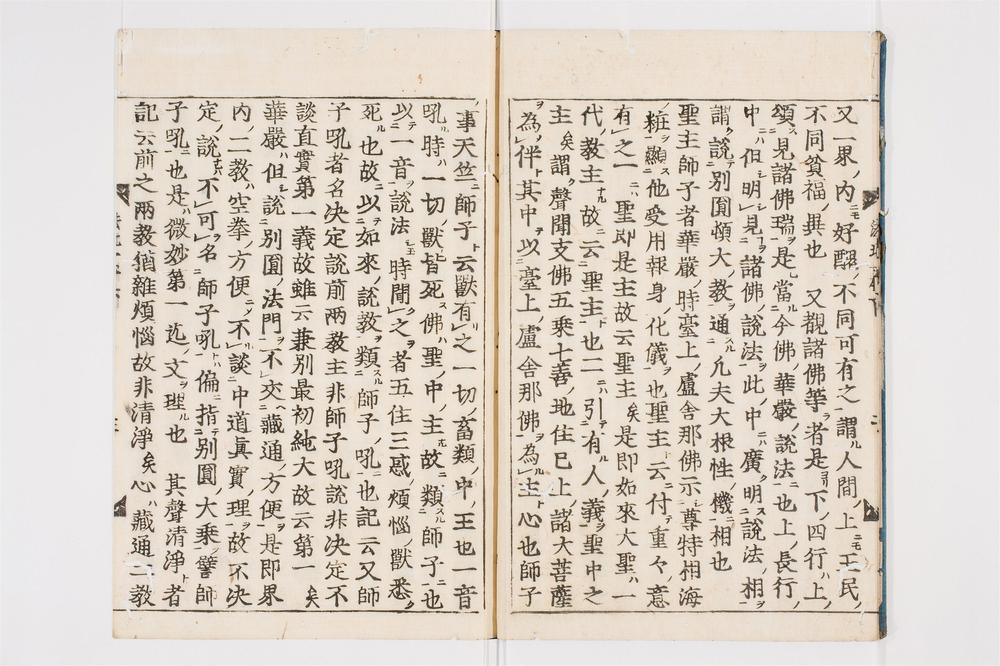 又一界ノ内ニモ好醜ノ不同可有之謂ル人間ノ上ニモ王民ノ
不同貧福ノ異也 又覩諸佛等ヲ者是ヨリ下ノ四行ハ上ノ
頌ス見諸佛瑞ヲ是ノ當ル今佛ノ華嚴ノ説法ニ也上ノ長行ノ
中ニハ但シ明シ見コヲ諸佛ノ説法ヲ此ノ中ニハ廣ク明ス説法ノ相ヲ
謂ク説テ別圓頓大ノ教ヲ通スル凡夫大根性ノ機ニ相也
聖主師子者華嚴ノ時臺上ノ盧舍那佛示シ尊特相海ノ
粧ヲ顯ス他受用報身ノ化儀ヲ也聖主ノ云ニ付テ重々ノ意
有之一ニハ聖即是主故云聖主矣是即如來大聖ハ一
代ノ教主ナル故ニ云聖主ト也二ニハ引テ有ル人ノ義ヲ聖中之
主矣謂ク聲聞支佛五乘七善地住已上ノ諸大菩薩
ヲ為伴ト其中テ以臺上ノ盧舍那佛ヲ為ル主ト心也師子
ノ事天竺ニ師子ト云獸有リ之一切ノ畜類ノ中ノ王也一音
吼ル時ハ一切ノ獸皆死ス佛ハ聖ノ中ノ主ナル故ニ類スル師子ニ也
以テ一音ヲ説法シ玉フ時聞之ヲ者五住三惑ノ煩惱ノ獸悉ク
死ル也故ニ以テ如來ノ説教ヲ類スル師子ノ吼ニ也記云又師
子吼者名決定説前兩教主非師子吼説非決定不
談直實第一義故雖云兼別最初純大故云第一矣
華嚴ハ但シ説ニ別圓ノ法門ヲ不交ヘ藏通ノ方便ヲ是即界
内ノ二教ハ空拳ノ方便ニメ不談セ中道眞實ノ理ヲ故ニ不決
定ノ説ナレハ不可名ク師子吼トハ偏ニ指ス別圓ノ大乘ヲ譬師
子吼ニ也是ハ微妙第一迄ノ文ノ理也 其聲清淨ト者
記云前之兩教猶雜煩惱故非清淨矣心ハ藏通ノ二教